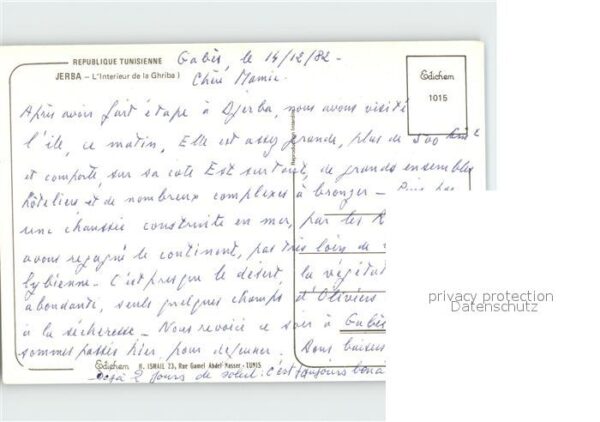 REPUBLIQUE TUNISIENNE
JERBA - L'Interieur de la Ghriba)
Gabès, le 14/12/82 -
Chère Mamie.
Edichem
1015
Reproduction Interdite
Après avoir fait étape à Djerba, nous avons visité
l'île, ce matin, Elle est assez grande, plus de 500 km²
et comporte, sur sa côte Est surtout, de grands ensembles
hôteliers et de nombreux complexes à bronzer - Puis par
une chaussée construite en mer, par les R
avons regagné le continent, pas très loin de
lybienne - C'est presque le désert la végétat
abondante, seuls quelques champs d'Oliviers
à la sécheresse - Nous revoici ce soir à Gabès
sommes passés hier, pour déjeuner. Bons baisers
Edichem H. ISMAIL 23, Rue Gamel Abdel Nasser - TUNIS
Déjà 2 jours de soleil : c'est toujours bon à
privacy protection
Datenschutz